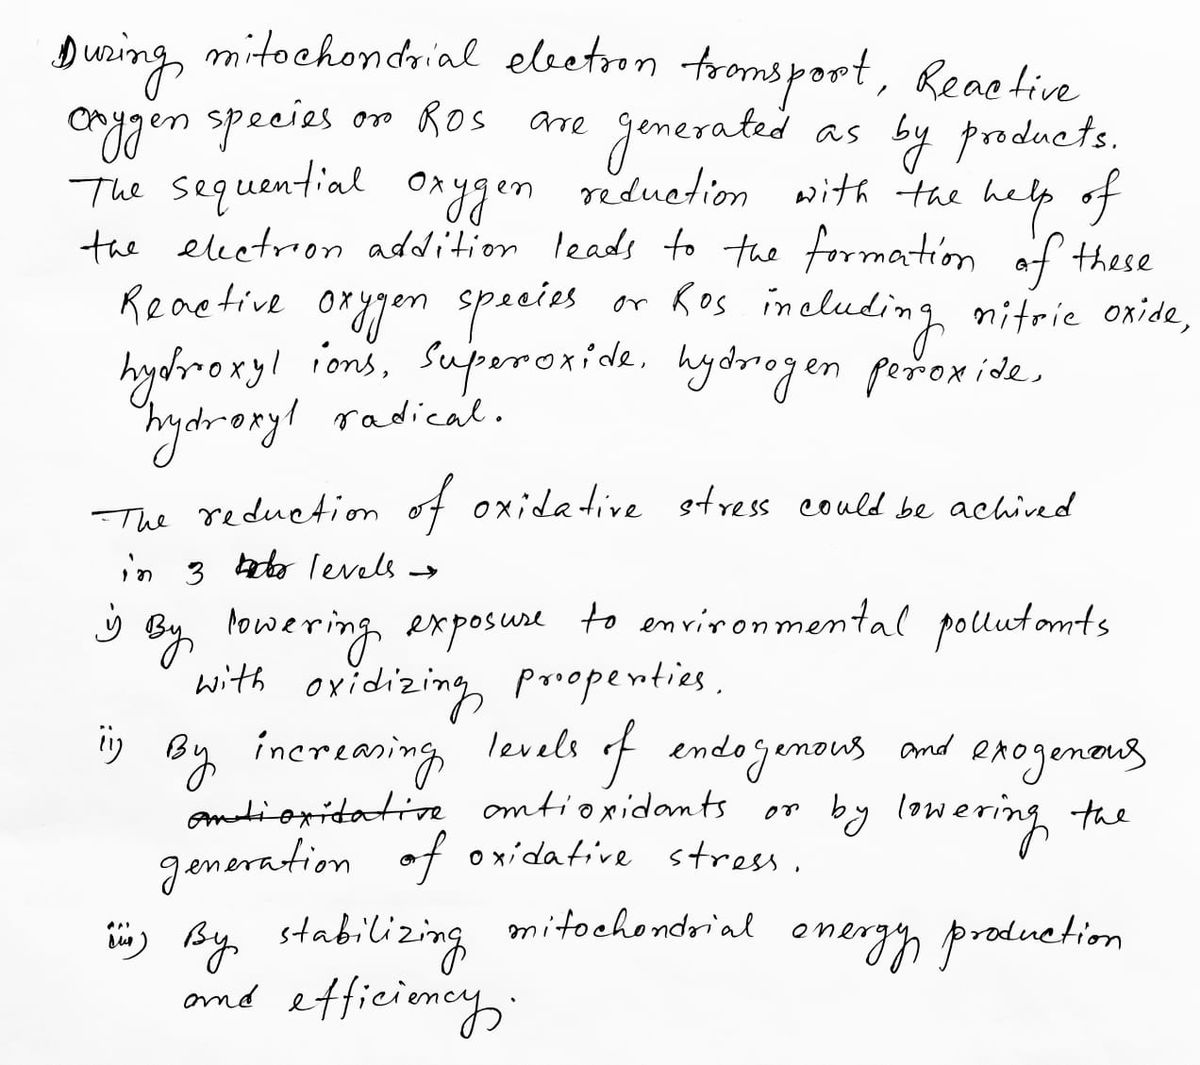 During mitochondrial electron transport, Reactive
oxygen species or ROS are generated as by products.
The sequential oxygen reduction with the help of
the electron addition leads to the formation of these
Reactive oxygen species or ROS including nitric oxide,
hydroxyl ions, superoxide, hydrogen peroxide,
hydroxyl radical.
The reduction of oxidative stress could be achived
in 3 levels →
i) By lowering exposure to environmental pollutants
with oxidizing properties.
ii) By increasing levels of endogenous and exogenous
antioxidative antioxidants or by lowering the
generation of oxidative stress.
iii) By stabilizing mitochondrial energy production
and efficiency.